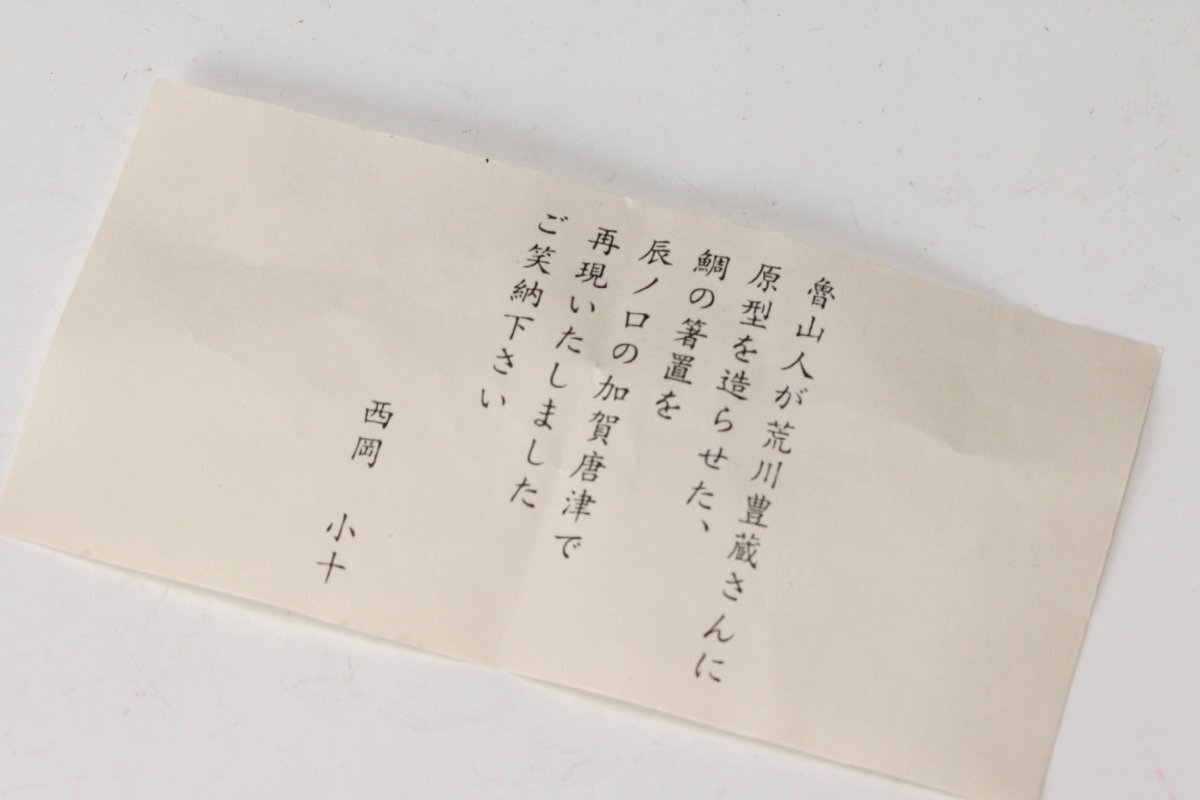 魯山人が荒川豊蔵さんに
原型を造らせた、
鯛の箸置を
辰ノ口の加賀唐津で
再現いたしました
ご笑納下さい
西岡 小十